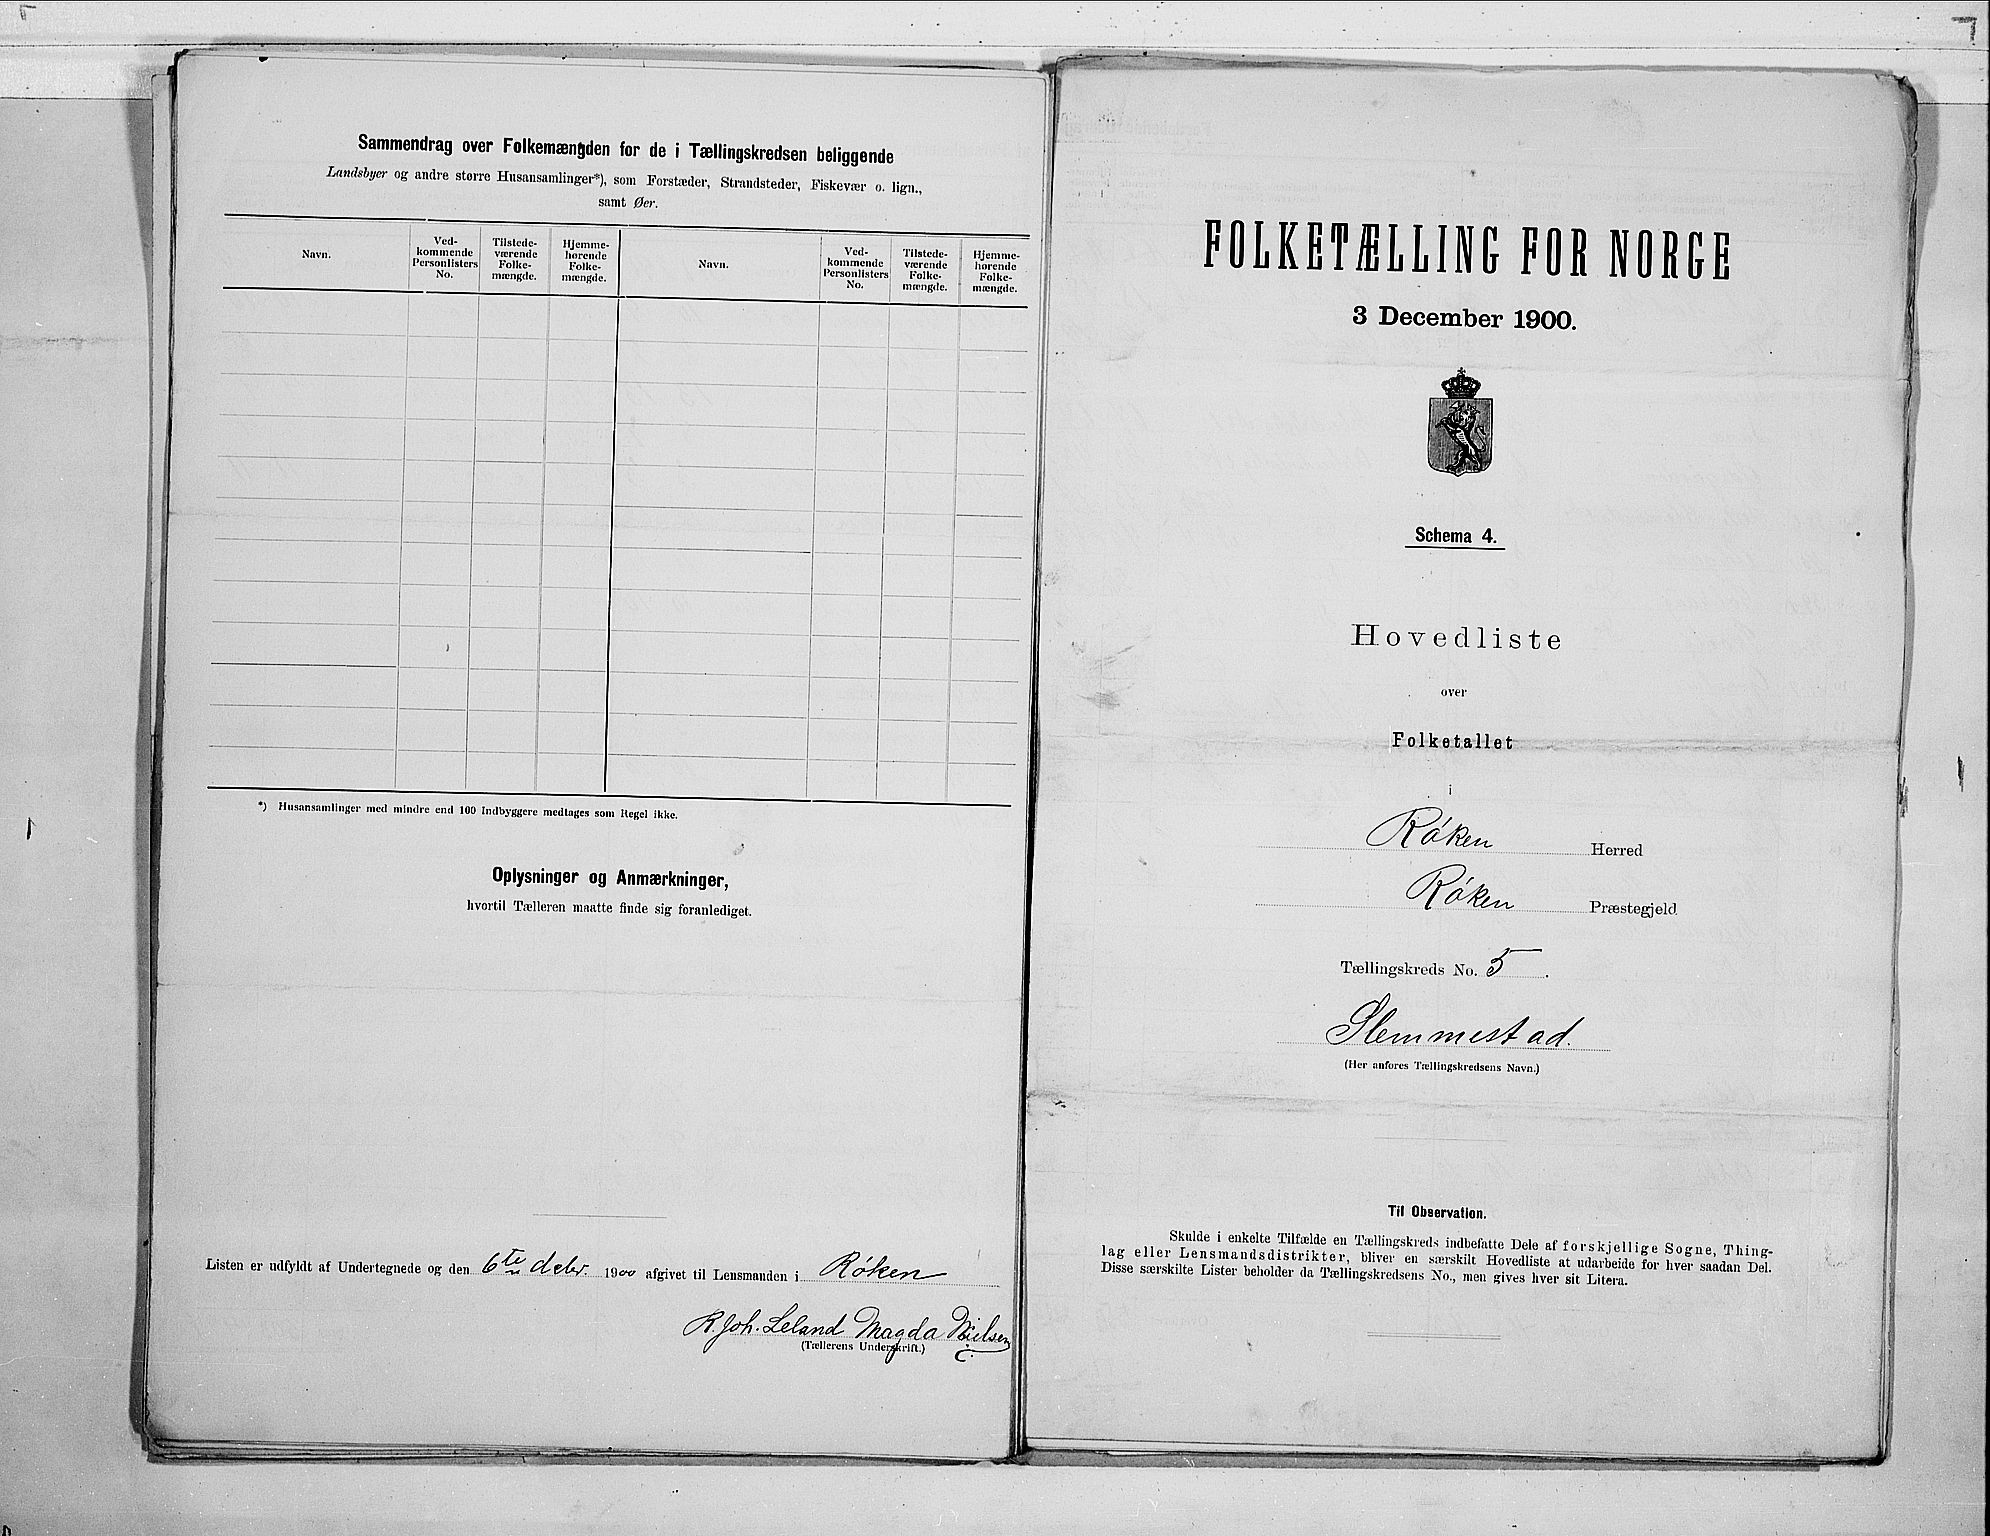 Sammendrag over Folkemængden for de i Tællingskredsen beliggende
Landsbyer og andre større Husansamlinger*), som Forstæder, Strandsteder, Fiskevær o. lign.,
samt Øer.
Navn.
Ved-
kommende
Personlisters
No.
Tilstede-
værende
Folke-
mængde.
Hjemme-
hørende
Folke-
mængde.
Navn.
Ved-
kommende
Personlisters
No.
Tilstede-
værende
Folke-
mængde.
Hjemme-
hørende
Folke-
mængde.
*) Husansamlinger med mindre end 100 Indbyggere medtages som Regel ikke.
Oplysninger og Anmærkninger,
hvortil Tælleren maatte finde sig foranlediget.
Listen er udfyldt af Undertegnede og den 6te decbr. 1900 afgivet til Lensmanden i Røken
R. Joh. Leland Magda Nielsen
(Tællerens Underskrift.)
FOLKETÆLLING FOR NORGE
3 December 1900.
Schema 4.
Hovedliste
over
Folketallet
i
Røken Herred
Røken Præstegjeld
Tællingskreds No. 5.
Slemmestad.
(Her anføres Tællingskredsens Navn.)
Til Observation.
Skulde i enkelte Tilfælde en Tællingskreds indbefatte Dele af forskjellige Sogne, Thing-
lag eller Lensmandsdistrikter, bliver en særskilt Hovedliste at udarbeide for hver saadan Del.
Disse særskilte Lister beholder da Tællingskredsens No., men gives hver sit Litera.